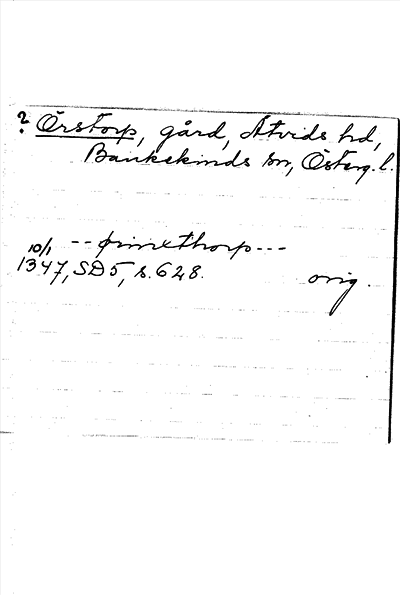 ? Örstorp, gård, Åtvids hd,
Bankekinds sn, Österg. l.
-- ørinxthorp ---
10/1
1347, SD5, s. 628. orig.